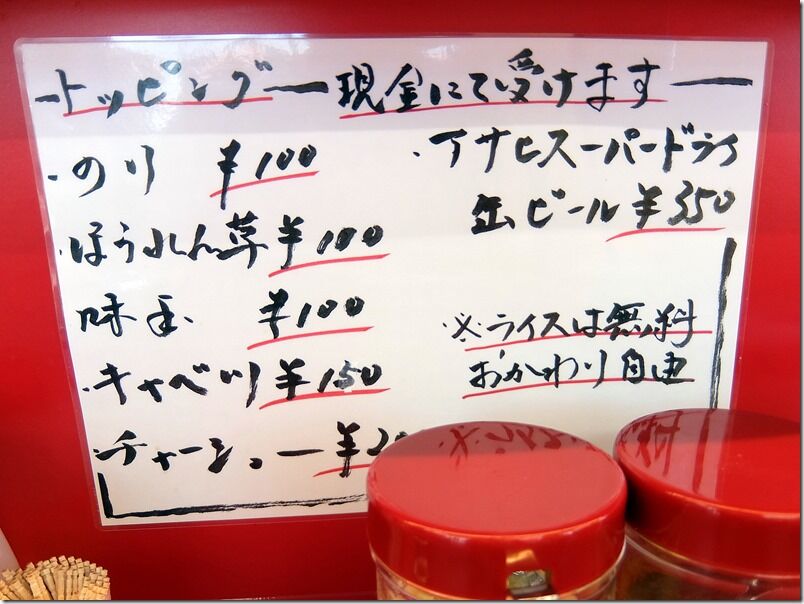 トッピング 現金にて受けます
・のり ¥100
・ほうれん草 ¥100
味玉 ¥100
・キャベツ ¥150
・チャーシュー ¥2
・アサヒスーパードライ
缶ビール ¥350
※ライスは無料
おかわり自由